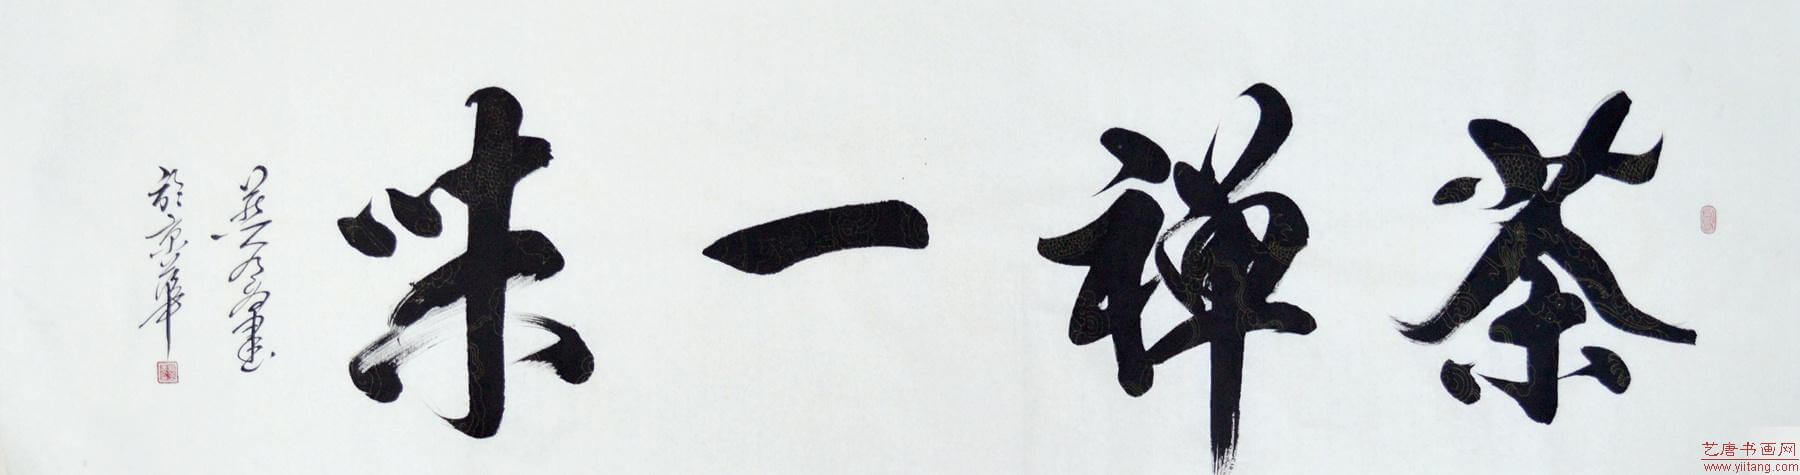 茶禅一味
於京华
艺唐书画网
www.yiitang.com